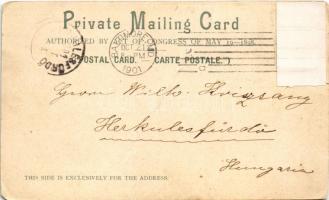 Private Mailing Card
AUTHORIZED BY ACT OF CONGRESS OF MAY 19, 1898.
(POSTAL CARD. CARTE POSTALE.")
BALTIMORE, MD.
OCT 21
PM
1901
Wilh.
Herkulesfürdő
Hungaria
THIS SIDE IS EXCLUSIVELY FOR THE ADDRESS.